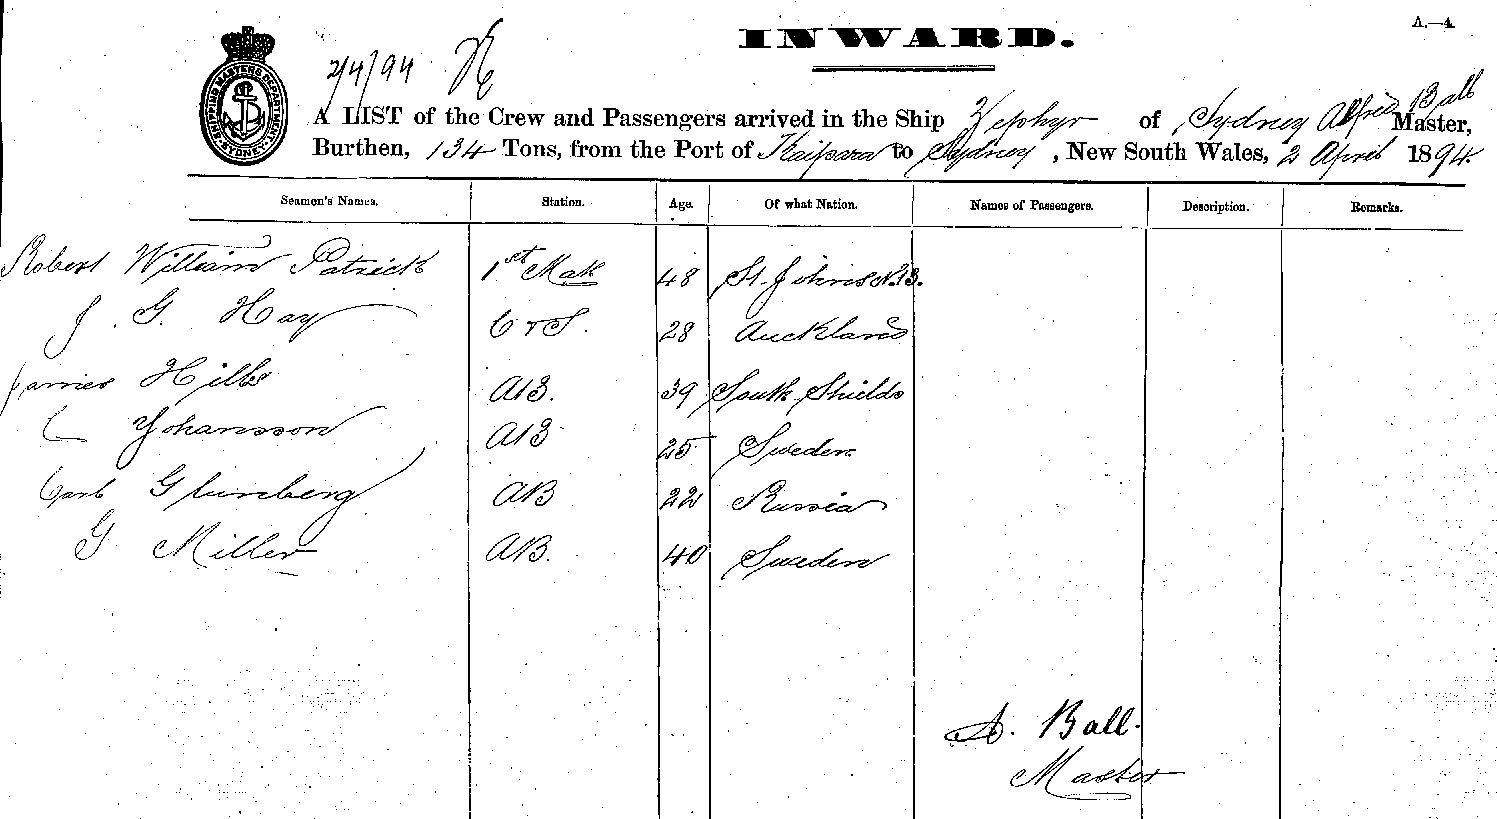 A.—4.
INWARD.
2/4/94
SHIPPING MASTERS DEPARTMENT
SYDNEY
A LIST of the Crew and Passengers arrived in the Ship Zephyr of Sydney Alfred Ball Master,
Burthen, 134 Tons, from the Port of Kaipara to Sydney, New South Wales, 2 April 1894.
Seamen's Names. Station. Age. Of what Nation. Names of Passengers. Description. Remarks.
Robert William Patrick 1st Mate 48 St. Johns N.B.
J. G. Hay C & S. 28 Auckland
James Hills AB. 39 South Shields
C Yohansson AB 25 Sweden
Carl AB 22 Russia
G Miller AB. 40 Sweden
A. Ball.
Master